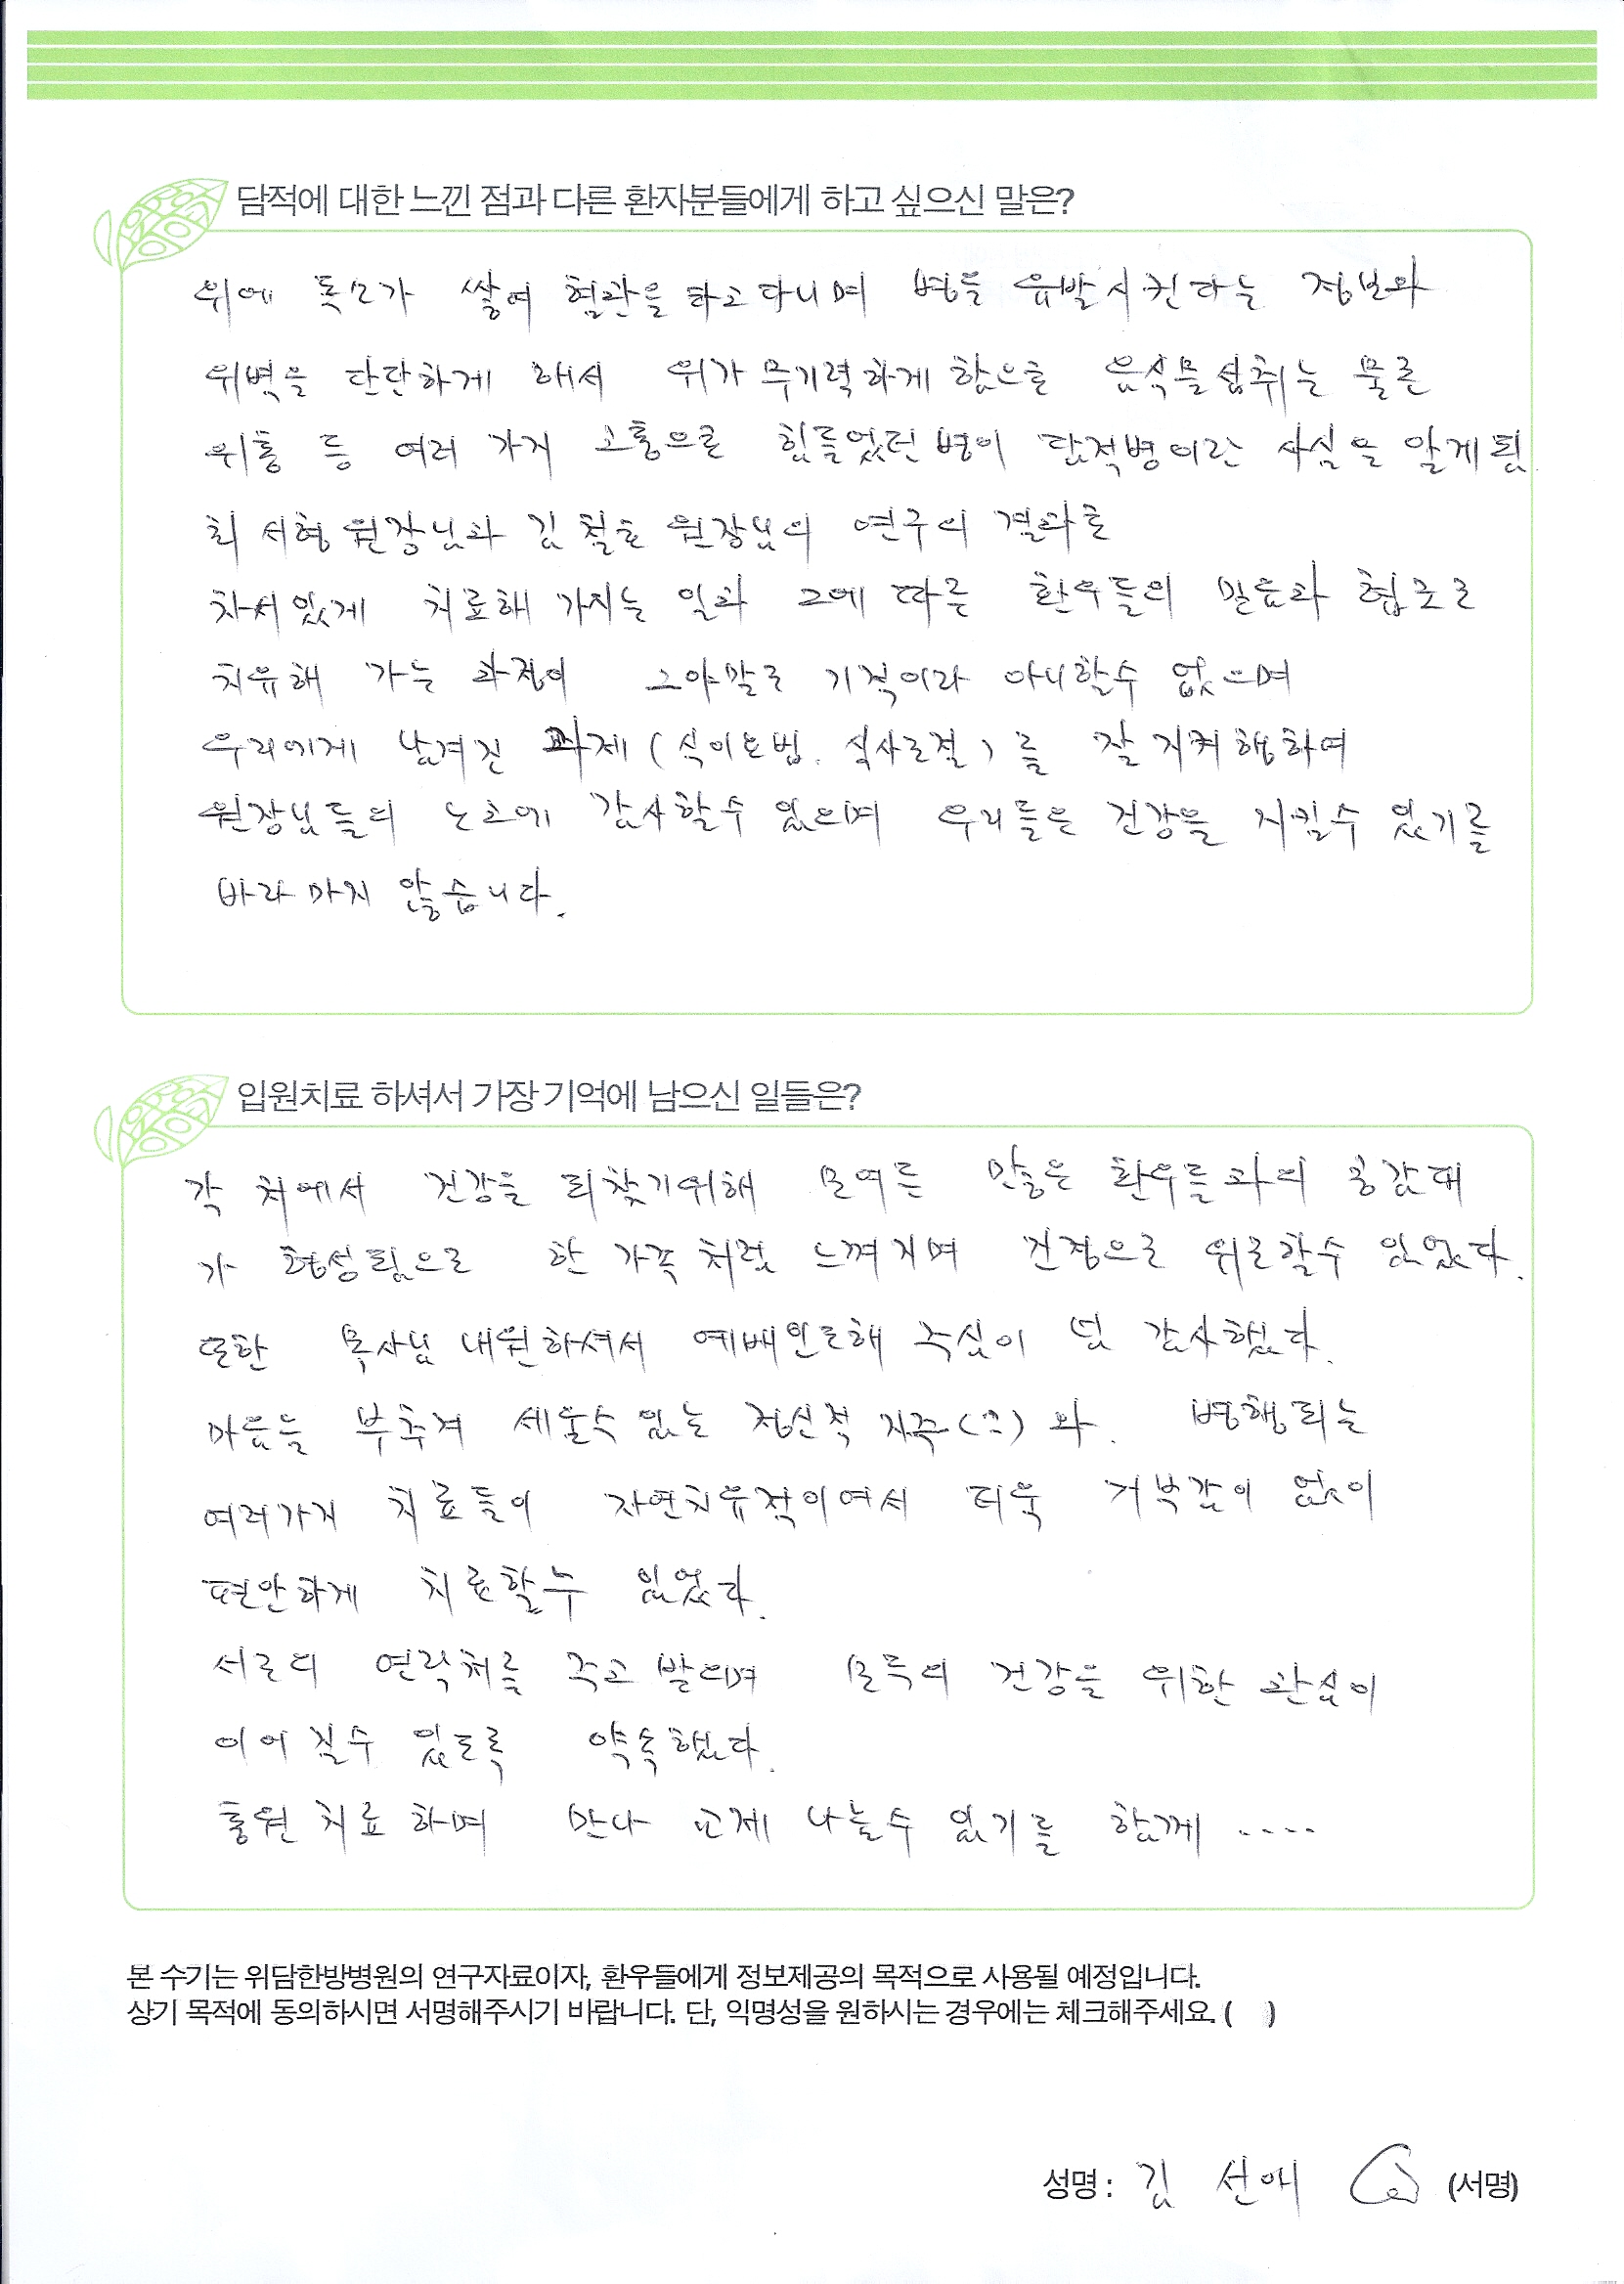 담적에 대한 느낀 점과 다른 환자분들에게 하고 싶으신 말은?
위에 독소가 쌓여 혈관을 타고 다니며 병을 유발시킨다는 정보와
위벽을 단단하게 해서 위가 무기력하게 함으로 음식물섭취는 물론
위통 등 여러 가지 고통으로 힘들었던 병이 담적병이란 사실을 알게됨
최서형 원장님과 김철호 원장님의 연구의 결과로
차서있게 치료해 가시는 일과 그에 따른 환우들의 믿음과 협조로
치유해 가는 과정이 그야말로 기적이라 아니할수 없으며
우리에게 남겨진 과제(식이요법. 식사조절)를 잘 지켜행하여
원장님들의 노고에 감사할수 있으며 우리들은 건강을 지킬수 있기를
바라 마지 않습니다.
입원치료 하셔서 가장 기억에 남으신 일들은?
각 처에서 건강을 되찾기위해 모여든 많은 환우들과의 공감대
가 형성됨으로 한 가족처럼 느껴지며 진정으로 위로할수 있었다.
또한 목사님 내원하셔서 예배인도해 주심이 넘 감사했다.
마음을 부추겨 세울수있는 정신적 지주(?)와. 병행되는
여러가지 치료들이 자연치유적이여서 더욱 거부감이 없이
편안하게 치료할수 있었다.
서로의 연락처를 주고 받으며 모두의 건강을 위한 관심이
이어 질수 있도록 약속했다.
통원 치료 하며 만나 교제 나눌수 있기를 함께 ....
본 수기는 위담한방병원의 연구자료이자, 환우들에게 정보제공의 목적으로 사용될 예정입니다.
상기 목적에 동의하시면 서명해주시기 바랍니다. 단, 익명성을 원하시는 경우에는 체크해주세요. ( )
성명 : 김 선애 (서명)